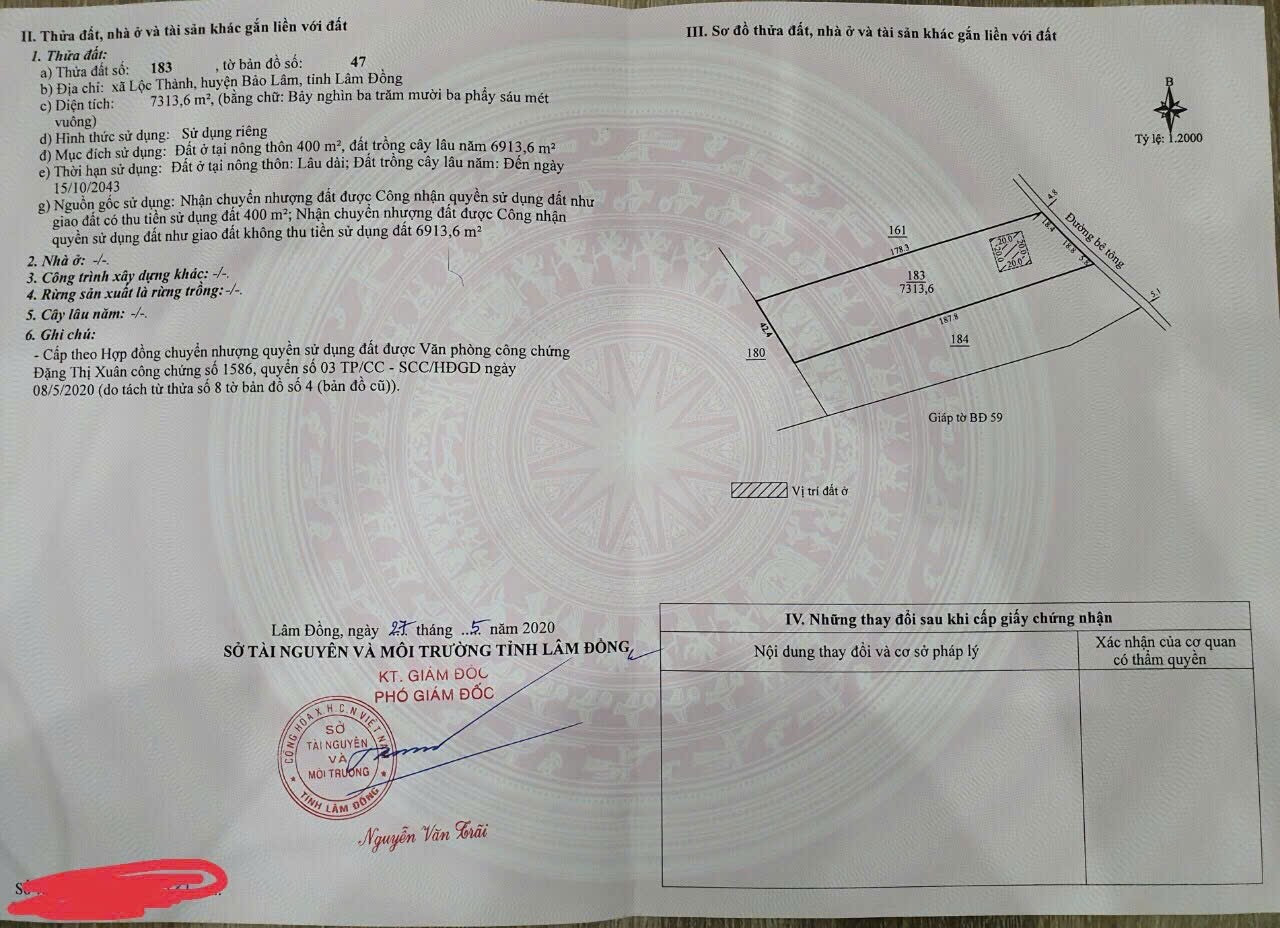 II. Thửa đất, nhà ở và tài sản khác gắn liền với đất
1. Thửa đất:
a) Thửa đất số: 183 , tờ bản đồ số: 47
b) Địa chỉ: xã Lộc Thành, huyện Bảo Lâm, tỉnh Lâm Đồng
c) Diện tích: 7313,6 m², (bằng chữ: Bảy nghìn ba trăm mười ba phẩy sáu mét
vuông)
d) Hình thức sử dụng: Sử dụng riêng
đ) Mục đích sử dụng: Đất ở tại nông thôn 400 m², đất trồng cây lâu năm 6913,6 m²
e) Thời hạn sử dụng: Đất ở tại nông thôn: Lâu dài; Đất trồng cây lâu năm: Đến ngày
15/10/2043
g) Nguồn gốc sử dụng: Nhận chuyển nhượng đất được Công nhận quyền sử dụng đất như
giao đất có thu tiền sử dụng đất 400 m²; Nhận chuyển nhượng đất được Công nhận
quyền sử dụng đất như giao đất không thu tiền sử dụng đất 6913,6 m²
2. Nhà ở: -/-.
3. Công trình xây dựng khác: -/-.
4. Rừng sản xuất là rừng trồng: -/-.
5. Cây lâu năm: -/-.
6. Ghi chú:
- Cấp theo Hợp đồng chuyển nhượng quyền sử dụng đất được Văn phòng công chứng
Đặng Thị Xuân công chứng số 1586, quyển số 03 TP/CC - SCC/HĐGD ngày
08/5/2020 (do tách từ thửa số 8 tờ bản đồ số 4 (bản đồ cũ)).
Lâm Đồng, ngày 27 tháng ..5. năm 2020
SỞ TÀI NGUYÊN VÀ MÔI TRƯỜNG TỈNH LÂM ĐỒNG
KT. GIÁM ĐỐC
PHÓ GIÁM ĐỐC
CỘNG HÒA X.H.C.N VIỆT NAM
SỞ
TÀI NGUYÊN
VÀ
MÔI TRƯỜNG
TỈNH LÂM ĐỒNG
Nguyễn Văn Trãi
III. Sơ đồ thửa đất, nhà ở và tài sản khác gắn liền với đất
B
Tỷ lệ: 1.2000
4.8
Đường bê tông
161
178.3
18.4
18.8
5.8
20.0
20.0
20.0
20.0
183
7313,6
5.1
42.4
187.8
180
184
Giáp tờ BĐ 59
Vị trí đất ở
IV. Những thay đổi sau khi cấp giấy chứng nhận
Nội dung thay đổi và cơ sở pháp lý
Xác nhận của cơ quan
có thẩm quyền